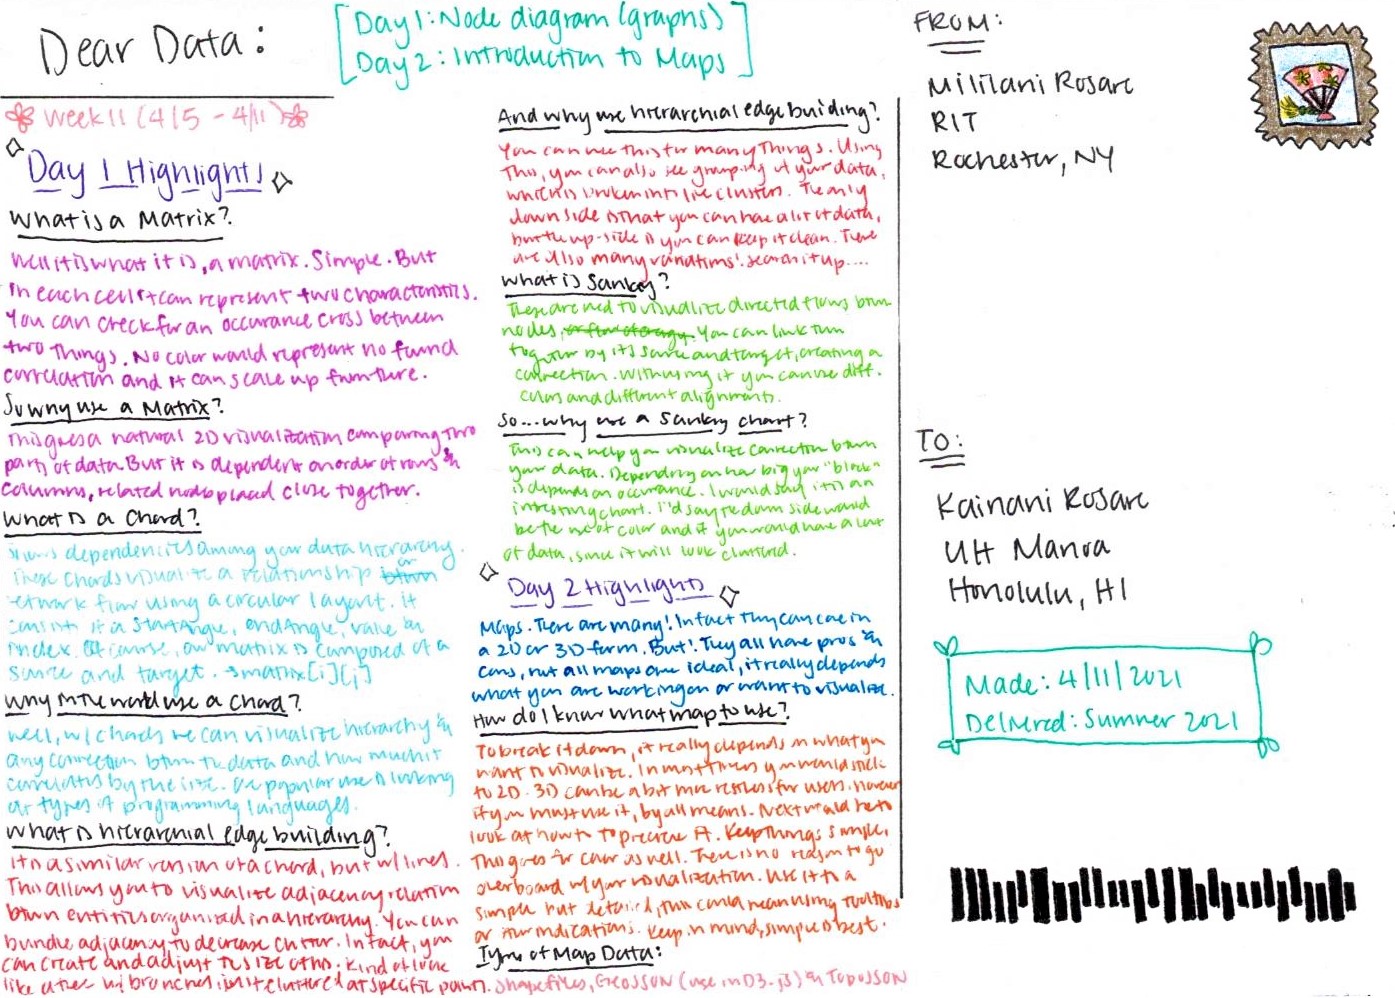 Dear Data:
[Day 1: Node diagram (graphs)
Day 2: Introduction to Maps]
Week 11 (4/5 - 4/11)
Day 1 Highlights
What is a Matrix?
Well it is what it is, a matrix. Simple. But
in each cell it can represent two characteristics.
You can check for an occurance cross between
two things. No color would represent no found
correlation and it can scale up furniture.
So why use a Matrix?
This gives a natural 2D visualization comparing two
parts of data. But it is dependent on order of rows &
columns, related nodes placed close together.
What is a Chord?
Shows dependencies among your data hierarchy.
These chords visualize a relationship or btwn
network flow using a circular layout. It
consists of a StartAngle, endAngle, value &
index. Of course, our matrix is composed of a
source and target. → matrix[i][j]
Why in the world use a Chord?
Well, w/ chords we can visualize hierarchy &
any connection btwn the data and how much it
correlates by the size. One popular use is looking
at types of programming languages.
What is hierarchial edge building?
It is a similar version of a chord, but w/ lines.
This allows you to visualize adjacency relation
btwn entities organized in a hierarchy. You can
bundle adjacency to decrease clutter. In fact, you
can create and adjust the size of this. Kind of look
like a tree w/ branches, just cluttered at specific points.
And why use hierarchial edge building?
You can use this for many things. Using
this, you can also see grouping of your data,
which is broken into like clusters. The only
down side is that you can have a lot of data,
but the up-side is you can keep it clean. There
are also many variations! search it up....
What is Sankey?
These are used to visualize directed flows btwn
nodes. You can link them
together by its source and target, creating a
connection. With using it you can use diff.
colors and different alignments.
So...why use a Sankey chart?
This can help you visualize connection btwn
your data. Depending on how big your "block"
is depends on occurance. I would say it is an
interesting chart. I'd say the down side would
be the use of color and if you would have a lot
of data, since it will look cluttered.
Day 2 Highlights
Maps. There are many! In fact they can come in
a 2D or 3D form. But! They all have pros &
cons, not all maps are ideal, it really depends
what you are working on or want to visualize.
How do I know what map to use?
To break it down, it really depends on what you
want to visualize. In most times you would stick
to 2D. 3D can be a bit more restless for users. However
if you must use it, by all means. Next would be to
look at how to perceive it. Keep things simple.
This goes for color as well. There is no reason to go
overboard w/ your visualization. Use it to a
simple but detailed, this could mean using tooltips
or other indications. Keep in mind, simple is best.
Types of Map Data:
Shapefiles, GEOJSON (use in D3.js) & TopoJSON
FROM:
Mililani Rosare
RIT
Rochester, NY
TO:
Kainani Rosare
UH Manoa
Honolulu, HI
Made: 4/11/2021
Delivered: Summer 2021